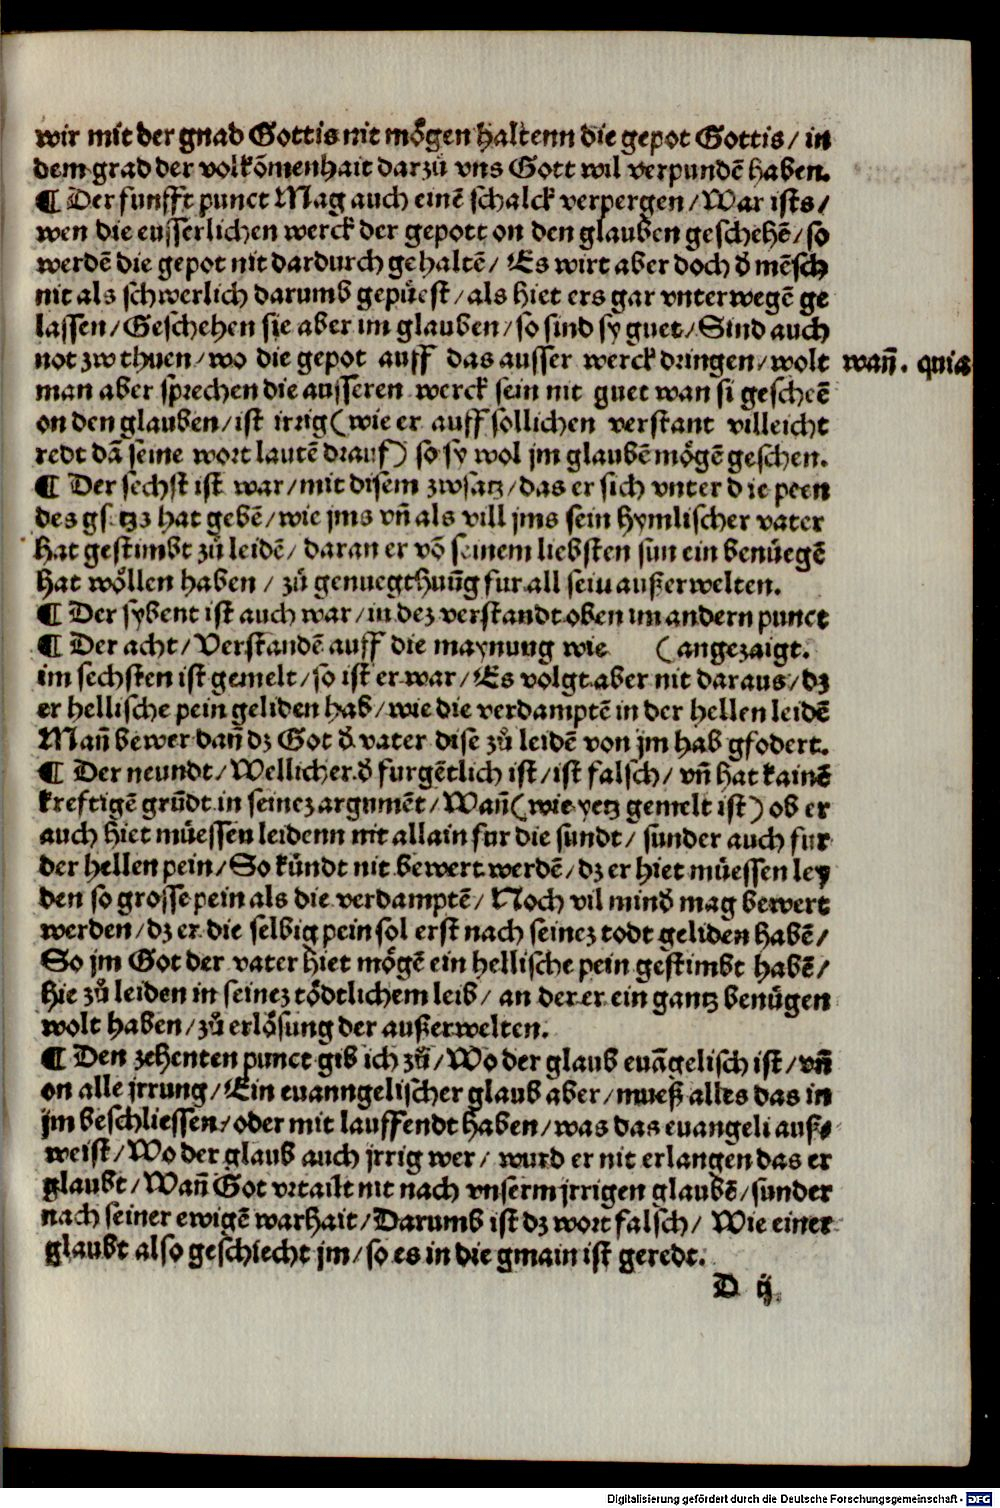 wir mit der gnad Gottis nit mögen haltenn die gepot Gottis / in
dem grad der volkōmenhait darzů vns Gott wil verpundē haben.
¶ Der funfft punct Mag auch einē schalck verpergen / War ists /
wen die eusserlichen werck der gepott on den glauben geschehē / so
werdē die gepot nit dardurch gehaltē / Es wirt aber doch d̄ mēsch
nit als schwerlich darumb gepüest / als hiet ers gar vnterwegē ge
lassen / Geschehen sie aber im glauben / so sind sy guet / Sind auch
not zw thuen / wo die gepot auff das ausser werck dringen / wolt wañ. quia
man aber sprechen die ausseren werck sein nit guet wan si gescheē
on den glauben / ist irrig (wie er auff sollichen verstant villeicht
redt dā seine wort lautē drauf) so sy wol jm glaubē mögē geschen.
¶ Der sechst ist war / mit disem zwsatz / das er sich vnter die peen
des gsetzs hat gebē / wie jms vñ als vill jms sein hymlischer vater
hat gestimbt zů leidē / daran er vō seinem liebsten sun ein benüegē
hat wöllen haben / zů genuegthuñg fur all seiu außerwelten.
¶ Der sybent ist auch war / in dez verstandt oben im andern punct
¶ Der acht / Verstandē auff die maynung wie (angezaigt.
im sechsten ist gemelt / so ist er war / Es volgt aber nit daraus / dz
er hellische pein geliden hab / wie die verdamptē in der hellen leidē
Mañ bewer dañ dz Got d̄ vater dise zů leidē von jm hab gfodert.
¶ Der neundt / Wellicher d̄ furgētlich ist / ist falsch / vñ hat kainē
kreftigē grūdt in seinez argumēt / Wañ (wie yetz gemelt ist) ob er
auch hiet müessen leidenn nit allain fur die sundt / sunder auch fur
der hellen pein / So kündt nit bewert werdē / dz er hiet müessen ley
den so grosse pein als die verdamptē / Noch vil mind̄ mag bewert
werden / dz er die selbig pein sol erst nach seinez todt geliden habē /
So jm Got der vater hiet mögē ein hellische pein gestimbt habē /
hie zů leiden in seinez tödtlichem leib / an der er ein gantz benügen
wolt haben / zů erlösung der außerwelten.
¶ Den zehenten punct gib ich zů / Wo der glaub euāgelisch ist / vñ
on alle jrrung / Ein euanngelischer glaub aber / mueß alles das in
jm beschliessen / oder mit lauffendt haben / was das euangeli auß⸗
weist / Wo der glaub auch jrrig wer / wurd er nit erlangen das er
glaubt / Wañ Got vrtailt nit nach vnserm jrrigen glaubē / sunder
nach seiner ewigē warhait / Darumb ist dz wort falsch / Wie einer
glaubt also geschiecht jm / so es in die gmain ist geredt.
D ij
Digitalisierung gefördert durch die Deutsche Forschungsgemeinschaft - DFG